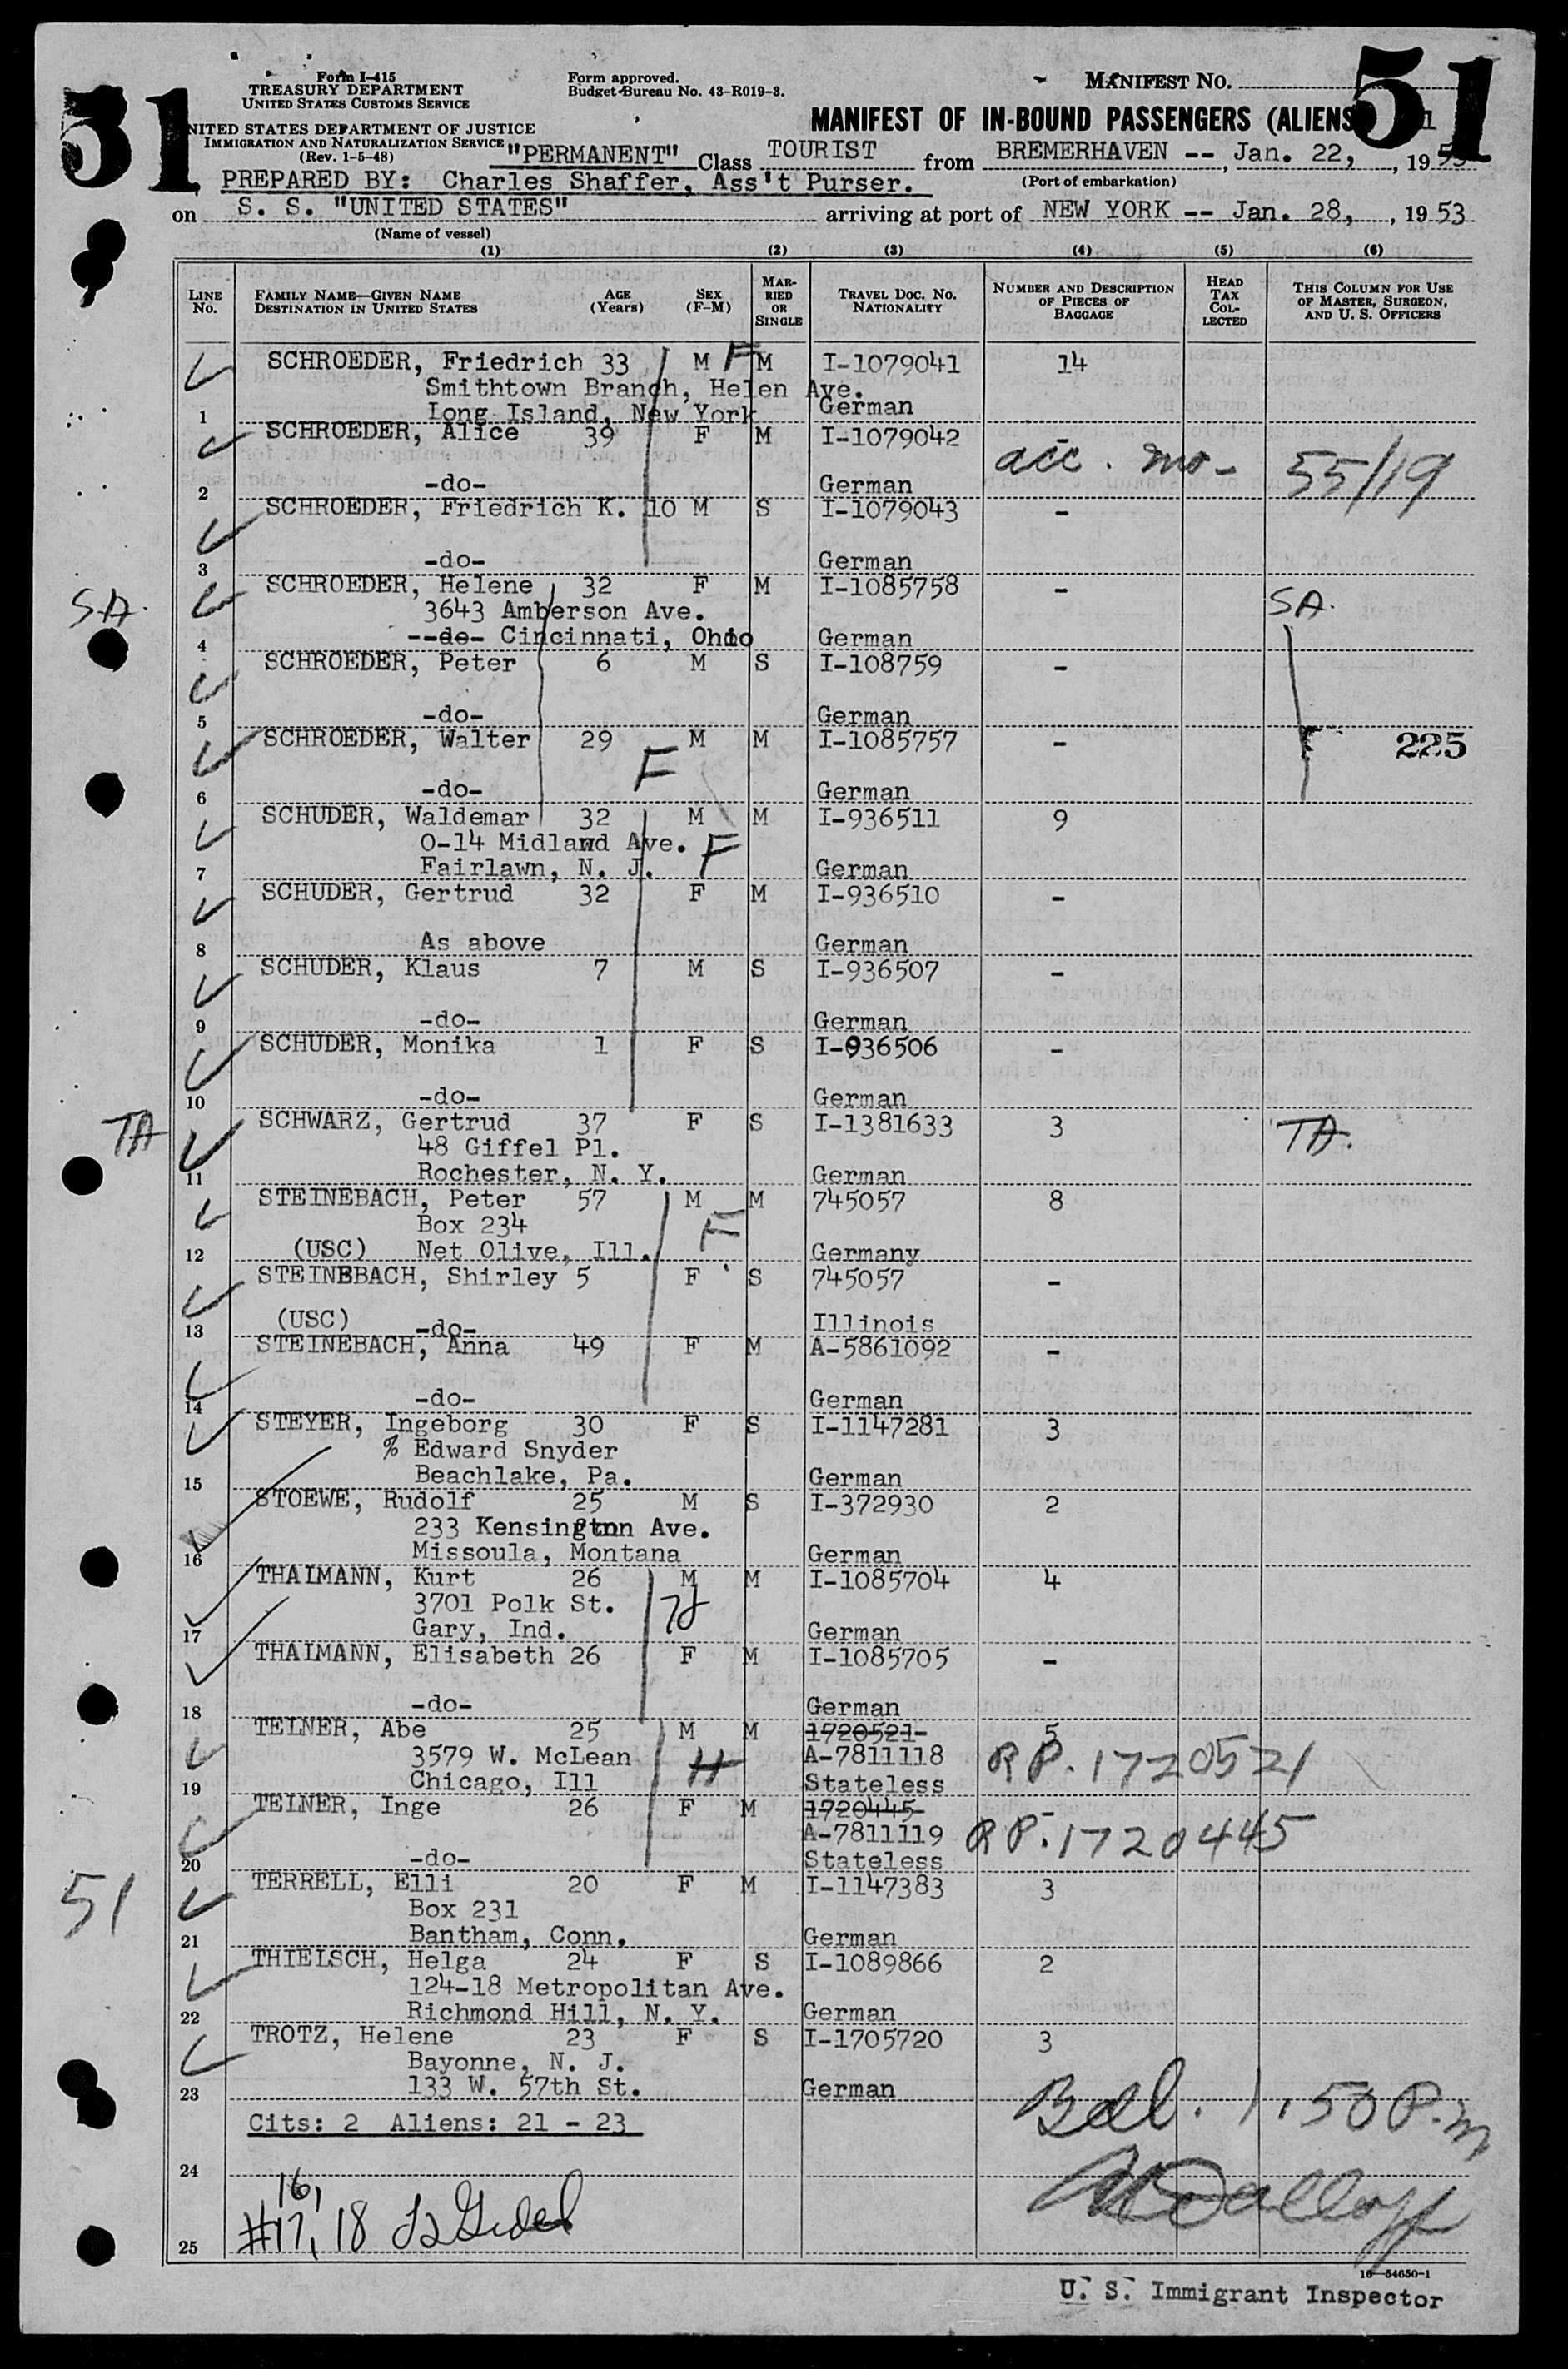 51
51
Form I-415
TREASURY DEPARTMENT
UNITED STATES CUSTOMS SERVICE
Form approved.
Budget Bureau No. 43-R019-3.
MANIFEST NO.
UNITED STATES DEPARTMENT OF JUSTICE
IMMIGRATION AND NATURALIZATION SERVICE
(Rev. 1-5-48)
MANIFEST OF IN-BOUND PASSENGERS (ALIENS)
"PERMANENT" Class TOURIST from BREMERHAVEN -- Jan. 22, , 1953
PREPARED BY: Charles Shaffer, Ass't Purser.
(Port of embarkation)
on S. S. "UNITED STATES" arriving at port of NEW YORK -- Jan. 28, , 1953
(Name of vessel)
(1) (2) (3) (4) (5) (6)
LINE No. FAMILY NAME—GIVEN NAME DESTINATION IN UNITED STATES AGE (Years) SEX (F-M) MARRIED OR SINGLE TRAVEL DOC. NO. NATIONALITY NUMBER AND DESCRIPTION OF PIECES OF BAGGAGE HEAD TAX COLLECTED THIS COLUMN FOR USE OF MASTER, SURGEON, AND U. S. OFFICERS
SCHROEDER, Friedrich 33 M F M I-1079041 14
Smithtown Branch, Helen Ave.
1 Long Island, New York German
SCHROEDER, Alice 39 F M I-1079042 -
acc. mo- 55/19
2 -do- German
SCHROEDER, Friedrich K. 10 M S I-1079043 -
3 -do- German
SCHROEDER, Helene 32 F M I-1085758 -
SA. 3643 Amberson Ave. SA.
4 --do- Cincinnati, Ohio German
SCHROEDER, Peter 6 M S I-108759 -
5 -do- German
SCHROEDER, Walter 29 M M I-1085757 - 225
F
6 -do- German
SCHUDER, Waldemar 32 M M I-936511 9
0-14 Midland Ave. F
7 Fairlawn, N. J. German
SCHUDER, Gertrud 32 F M I-936510 -
8 As above German
SCHUDER, Klaus 7 M S I-936507 -
9 -do- German
SCHUDER, Monika 1 F S I-936506 -
10 -do- German
TA SCHWARZ, Gertrud 37 F S I-1381633 3 TA.
48 Giffel Pl.
11 Rochester, N. Y. German
STEINEBACH, Peter 57 M M 745057 8
Box 234 F
12 (USC) Net Olive, Ill. Germany
STEINEBACH, Shirley 5 F S 745057 -
13 (USC) -do- Illinois
STEINEBACH, Anna 49 F M A-5861092 -
14 -do- German
STEYER, Ingeborg 30 F S I-1147281 3
% Edward Snyder
15 Beachlake, Pa. German
STOEWE, Rudolf 25 M S I-372930 2
233 Kensington Ave.
16 Missoula, Montana German
THAIMANN, Kurt 26 M M I-1085704 4
3701 Polk St.
17 Gary, Ind. German
THAIMANN, Elisabeth 26 F M I-1085705 -
18 -do- German
TELNER, Abe 25 M M 1720521- 5
3579 W. McLean H A-7811118 RP. 1720521
19 Chicago, Ill Stateless
TELNER, Inge 26 F M 1720445- -
A-7811119 RP. 1720445
20 -do- Stateless
51 TERRELL, Elli 20 F M I-1147383 3
Box 231
21 Bantham, Conn. German
THIELSCH, Helga 24 F S I-1089866 2
124-18 Metropolitan Ave.
22 Richmond Hill, N. Y. German
TROTZ, Helene 23 F S I-1705720 3
Bayonne, N. J.
23 133 W. 57th St. German
Cits: 2 Aliens: 21 - 23
1.50 P.M
24
16,
25 #17, 18
16—54650-1
U. S. Immigrant Inspector